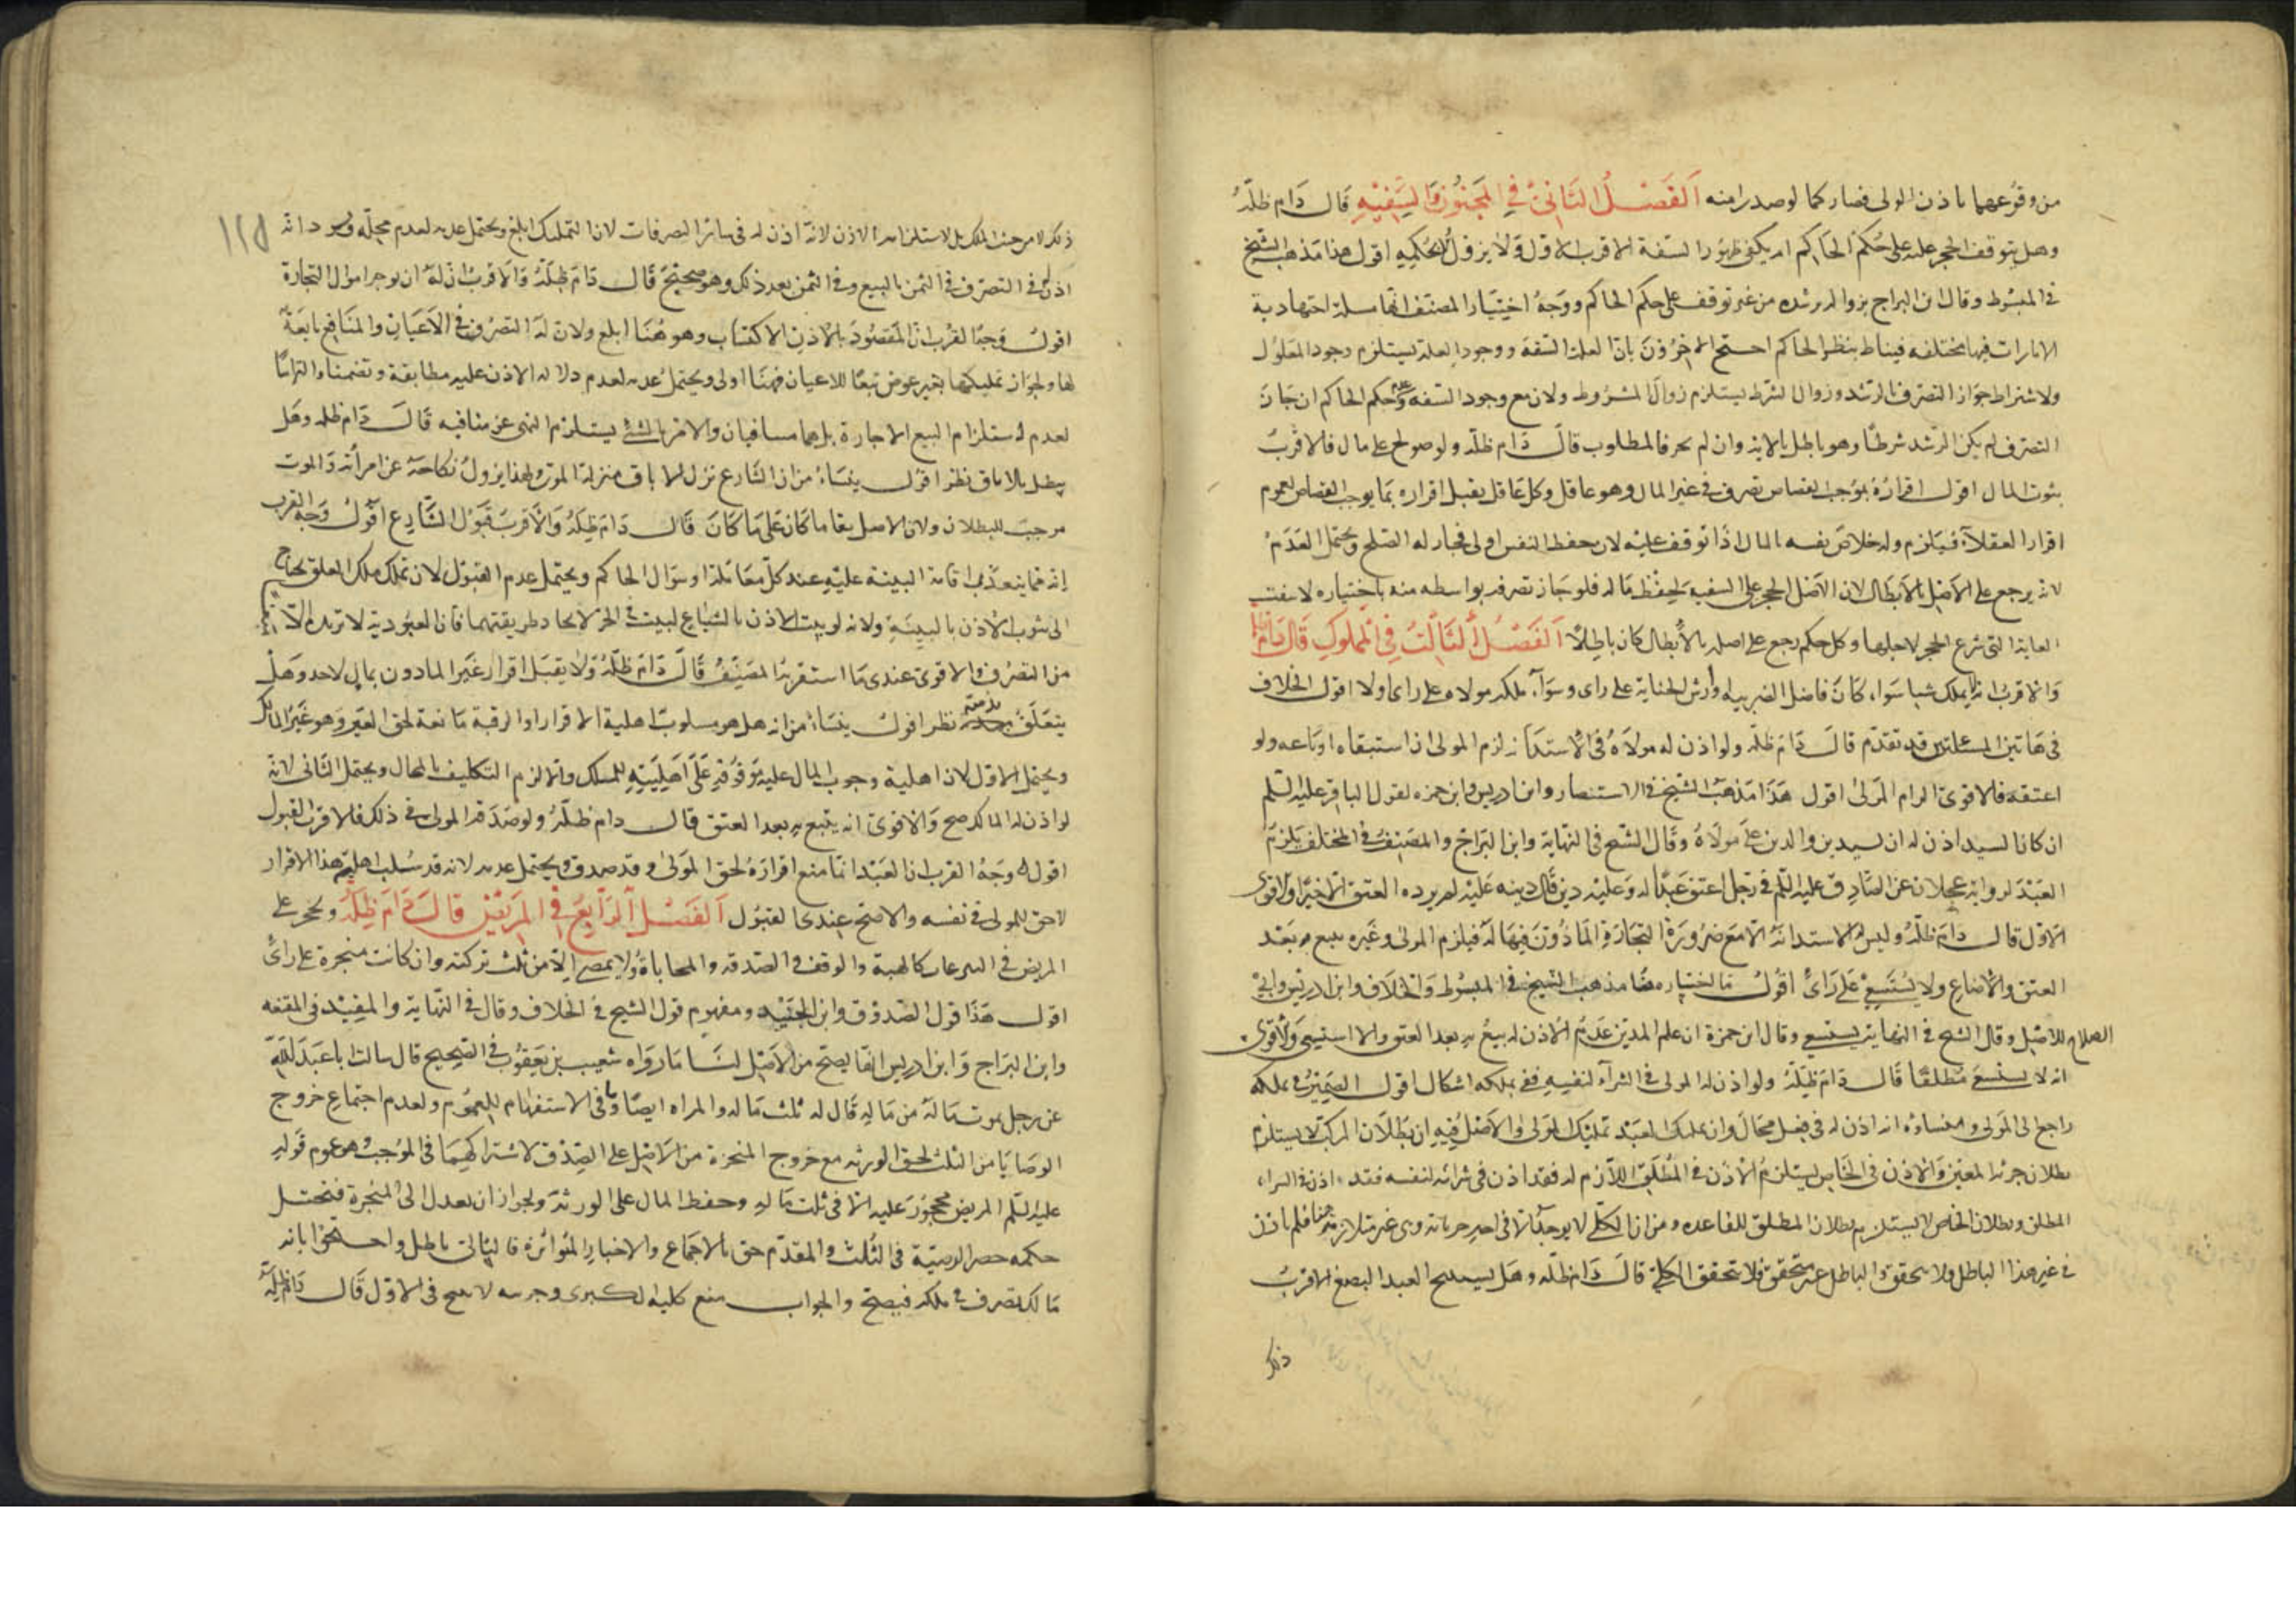 من وقوعهما باذن الولى فصار كما لو صدر امنه اَلفَصْلُ الثَانىُ فِى المَجنُون وَالسَّفِيْهِ قَال دَام ظلّهُ
وهل يتوقف الحجر عليه على حُكم الحَاكم ام يكفى ظهُور السّفه الاقرب الاول ولا يزول الا بحكمِهِ اقول هذا مَذهبُ الشيخ
فى المبسُوط وقال ابن البراج بزواله برشده من غير توقف على حكم الحاكم ووجهُ اختيَار المصنف انها مسلة اجتهادية
الامارات فيها مختلفه فيناط بنظر الحاكم احتج الاخرُون بانّ العلة السّفه ووجود العلة يستلزم وجود المعلُول
ولاشتراط جوَاز التصرف بالرّشد وزوال الشرط يستلزم زوال المشرُوط ولان مع وجود السّفه وعدم حكم الحاكم ان جَازَ
التصرف لم يكن الرّشد شرطًا وهو باطل بالايه وان لم يجز فالمطلوب قالَ دَام ظلّه ولو صولح على مال فالاقربُ
ثبوت المال اقول اقرارُهُ بموجب القصاص تصرف فى غير المال وهو عاقل وكل عَاقل يقبل اقراره بمَا يوجب القصاص لعموم
اقرار العقلاَء فيلزم وله خلاصُ نفسه بالمال اذا توقف عليْه لان حفظ النفس اولى فجاز له الصّلح ويحتمل العَدَمُ
لانه يرجع على الاَصْل بالابطال لان الاَصْل الحجر على السفيه لحِفْظ مَاله فلو جَاز تصرفه بواسطه منه باختياره لانتفت
الغاية التى شرع الحجر لاجلها وكل حكم رجع على اصله بالاِبطال كان باطِلاً اَلفَصْلُ الثَالثُ فِى المملُوكِ قَال دَام ظله
وَالاقربُ انه يملك شيا سَوَاء كَانَ فاضل الضريبه او أرش الجناية على راى وسَوآء ملكه مولاه على راى اولا اقول الخلاف
فى هَاتين المسئلتين قد تقدّم قالَ دَامَ ظله ولو اذن له مولاهُ فى الاستدانه لزم المولى ان استبقاه او باعه ولو
اعتقه فالاقوى الزام المولى اقول هَذا مَذهبُ الشيخ فى الاستبصار وابن ادريس وابن حمزه لقول الباقر عليه السّلم
ان كان السيد اذن له ان يستدين والدين على مولاهُ وقَال الشيخ فى النهاية وابن البرَاج والمصَنِفُ فى المختلف يلزمُ
العَبْد لروايه عجلان عن الصَّادِق عليه السّلم فى رَجل اعتق عَبدًا له وعَليْه دين قَال دينه عَليْه لم يرده العتق الا خيرًا والاقوى
الاول قال دَامَ ظلّهُ وليس له الاستدانَه الا مَعَ ضرُورَة التجَارَةِ المَاذُونَ فِيهَا لَه فيلزم المولى وغَيره يتبع به بَعْد
العتق والاضاع ولا يُسْتَسعىٰ عَلى رَاىٌ اقُولُ مَا اختَاره هنا مذهب الشيخ فى المبسُوط وَالخلاَف وابن ادريس وابى
الصلاح للاصْل وقال الشيخ فى النهاية يستسعى وقال ابن حمزة ان علم المدين عَدَمَ الاذن له بيعُ به بعد العتق والا استسعىَ وَالاقوى
انه لا يستسعى مُطلقًا قَال دَامَ ظِلّهُ ولو اذن له المولى فى الشراء لنفسِهِ ففى تملكه اشكال اقول الضَمِيرُ فى تملكه
راجع الى المَولى ومنشاؤه انه اذن له فى فِعل محَال وان تملك العبَد تمليك المَولى والاَصْلُ فيهِ ان بَطلان المركبِ لا يستلزم
بطلان جزئه المعَيّن وَالاذن فى الخَاص يَستلزمُ الاذن فى المُطلَق اللاّزم له فقد اذن فى شرائه لنفسه فقد اذن فى الشراء
المطلق وبطلان الخاص لا يستلزم بطلان المطلق للقاعده ومن ان الكلى لا يوجَد الا فى احد جزئياته وهى غير متلازمة هنا فلم ياذن
فى غير هذا الباطل ولا يحقق والباطل غير متحقق فلا تحقق للكلى قالَ دَام ظلّه وهَل يستبيح العبد البضع الاقربُ
ذلك
١١٥
ذلك لا من حيث الملك بل لاستلزامه الاذن لانه اذن له فى سائر التصرفات لان التمليك ابلغ ويحتمل عدمه لعدم محله وقوله انه
اذنٌ فى التصرّف فى الثمن بالمبيع وفى الثمن بعد ذلك وهو صحيْحَ قَال دَامَ ظِلّهُ وَالاَقرَبُ ان لهُ ان يوجر اموال التجارة
اقولُ وَجهُ القرُب ان المقصُودَ بالاذن الاكتسَاب وهو هُنَا ابلغ ولان لهُ التصرُف فى الاَعيَان والمَنَافع تابعَةٌ
لها ولجوَاز تمليكها بغير عوض تبعًا للاعيان فهنَا اولى ويحتملُ عدمه لعدم دلاله الاذن عليه مطابقة وتضمنا والتزامًا
لعدم استلزام البيع الاجارة بل هما متنافيان والامر بالشئ يستلزم النهى عن منافيه قالَ دَام ظله وهَل
يبطل بالاباق نظر اقولُ ينشَاءُ من ان الشارع نزل الاباق منزلة الموت ولهذا يزولُ نكاحَهُ عن امرأته وَالموت
موجبَ للبطلان ولان الاصل بقا ما كان عَلى مَا كَانَ قَال دَامَ ظِلّهُ وَالاَقربُ قبُولُ الشّايع اقولُ وَجهُ القرب
اِنّه مما يتعذّر اقامة البينة عليْهِ عند كل معَاملة او سؤال الحاكم ويحتمل عدم القبُول لان تملك ملك الغير يحتاج
الى ثبوت الاذن بالبيِنَةِ ولانه لو يبيت الاذن بالشياع لبيت فى الحر لاتحاد طريقتهما فان العبُودية لا تزيده الا
من التصرُف والاقوىَ عندى مَا استقربهُ المصَنِّفُ قَالَ دَامَ ظِلّهُ وَلاَ يقبَل اقرار غيَر الماذون بمالٍ لاحد وهَل
يتعَلّقُ بذمته نظر اقولُ ينشَاءُ من انه هل هو مسلوبُ اهلية الاقرار او الرقبة مَانعة لحق الغيَر وَهو غَيرُ المالك
ويحتمل الاول لان اهلية وجوب المال عليه مَوقُوفةٍ عَلىَ اَهليَتِهِ للملك والا لزم التكليف بالمحال ويحتمل الثّانى لانه
لو اذن له المالك صح وَالاقوىٰ انه يتبع به بعد العتق قَال دام ظلّهُ ولو صَدّقه المولى فى ذلك فالاقرب القبول
اقول وجهُ القرب ان العَبْد انّما منع اقرارَهُ لحق المولىٰ وقد صدق ويحتمل عدمه لانه قد سُلب اهليّة هذا الاقرار
لاحق للمولى فى نفسه والاصَحّ عندى القبُول اَلفَصْلُ اَلرَّابعُ فى المَريْض قَالَ دَامَ ظِلّهُ ويحجر على
المريض فى التبرعات كالهبة والوقف والصّدقه والمحاباة ولا يمضى الاّ من ثلث تركته وان كانت منجزة على راىٌ
اقول هَذَا قول الصّدوُق وابن الجنيْد ومفهوم قول الشيخ فى الخلاف وقال فى النهاية والمفيْد فى المقنعه
وابن البَراج وَابن ادريس انّها يصحّ من الاَصْل لنَا مَا رَواه شعيب بن يَعقُوب فى الصّحيح قال سالت ابا عَبْدَ اللهِ
عن رجل يموت مَا لَهُ من مَالهِ قَال له ثلث مَاله والمراه ايضًا وما فى الاستفهام للعمُوم ولعدم اجتماع خروج
الوصَايَا من الثلث لحق الورثه مع خروج المنجزة من الاَصْل على الصِدْق لاشتراكهِمَا فى المؤجب وهو عموم قولهِ
عليه السّلم المريض محجُورَ عليه الاّ فى ثلث مَالهِ وحفظ المال على الورثةَ ولجواز ان يعدل الى المنجزة فتختل
حكمه حصر الوصيّة فى الثُلث والمقدّم حق بالاجمَاع والاخبار المتُواترة فالتالى باطل واحتجّوا بانه
مَالك تصرف فى ملكه فيصحّ والجواب منع كليه الكبرى وجزئيه لا ينتج فى الاوّل قَال دَام ظِلّهُ